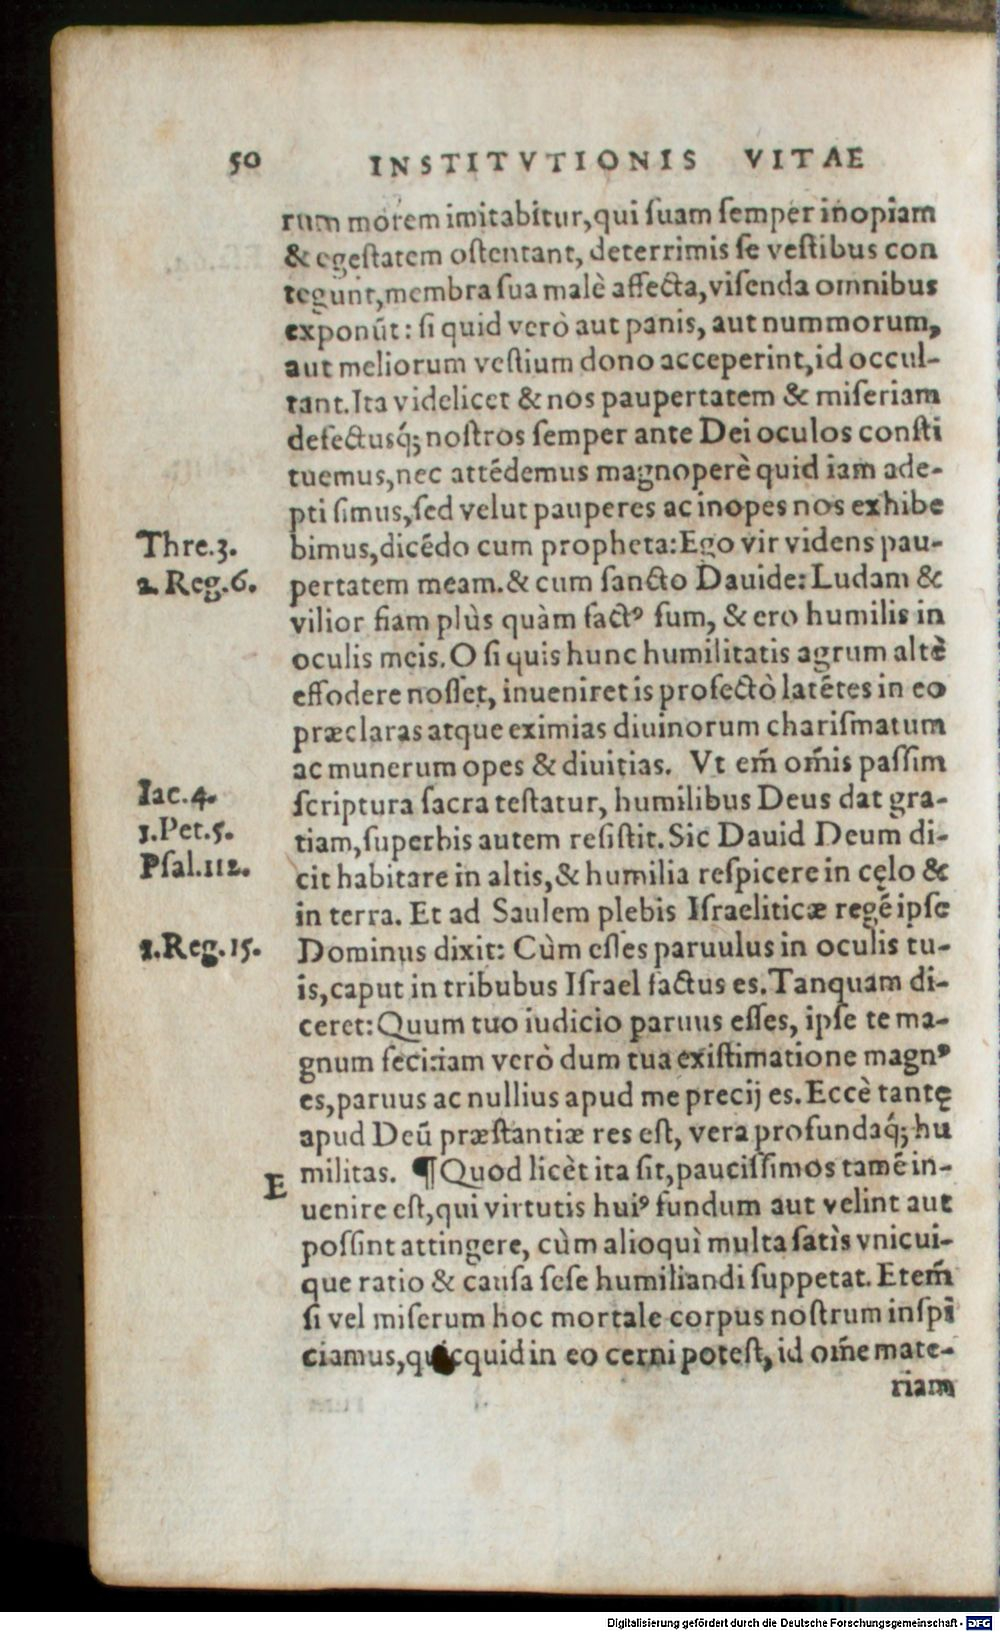 50 INSTITVTIONIS VITAE
rum morem imitabitur, qui ſuam ſemper inopiam
& egeſtatem oſtentant, deterrimis ſe veſtibus con
tegunt, membra ſua malè affecta, viſenda omnibus
exponūt: ſi quid verò aut panis, aut nummorum,
aut meliorum veſtium dono acceperint, id occul-
tant. Ita videlicet & nos paupertatem & miſeriam
defectusq́; noſtros ſemper ante Dei oculos conſti
tuemus, nec attēdemus magnoperè quid iam ade-
pti ſimus, ſed velut pauperes ac inopes nos exhibe
Thre.3. bimus, dicēdo cum propheta: Ego vir videns pau-
2. Reg.6. pertatem meam. & cum ſancto Dauide: Ludam &
vilior fiam plùs quàm factꝰ ſum, & ero humilis in
oculis meis. O ſi quis hunc humilitatis agrum altè
effodere noſſet, inueniret is profectò latētes in eo
præclaras atque eximias diuinorum chariſmatum
ac munerum opes & diuitias. Vt em̄ om̄is paſſim
Iac.4. ſcriptura ſacra teſtatur, humilibus Deus dat gra-
1.Pet.5. tiam, ſuperbis autem reſiſtit. Sic Dauid Deum di-
Pſal.112. cit habitare in altis, & humilia reſpicere in cęlo &
in terra. Et ad Saulem plebis Iſraeliticæ regē ipſe
1.Reg.15. Dominus dixit: Cùm eſſes paruulus in oculis tu-
is, caput in tribubus Iſrael factus es. Tanquam di-
ceret: Quum tuo iudicio paruus eſſes, ipſe te ma-
gnum feci: iam verò dum tua exiſtimatione magnꝰ
es, paruus ac nullius apud me precij es. Eccè tantę
apud Deū præſtantiæ res eſt, vera profundaq́; hu
E militas. ¶ Quod licèt ita ſit, pauciſſimos tamē in-
uenire eſt, qui virtutis huiꝰ fundum aut velint aut
poſſint attingere, cùm alioquì multa ſatìs vnicui-
que ratio & cauſa ſeſe humiliandi ſuppetat. Etem̄
ſi vel miſerum hoc mortale corpus noſtrum inſpi
ciamus, quicquid in eo cerni poteſt, id om̄e mate-
riam
Digitalisierung gefördert durch die Deutsche Forschungsgemeinschaft - DFG